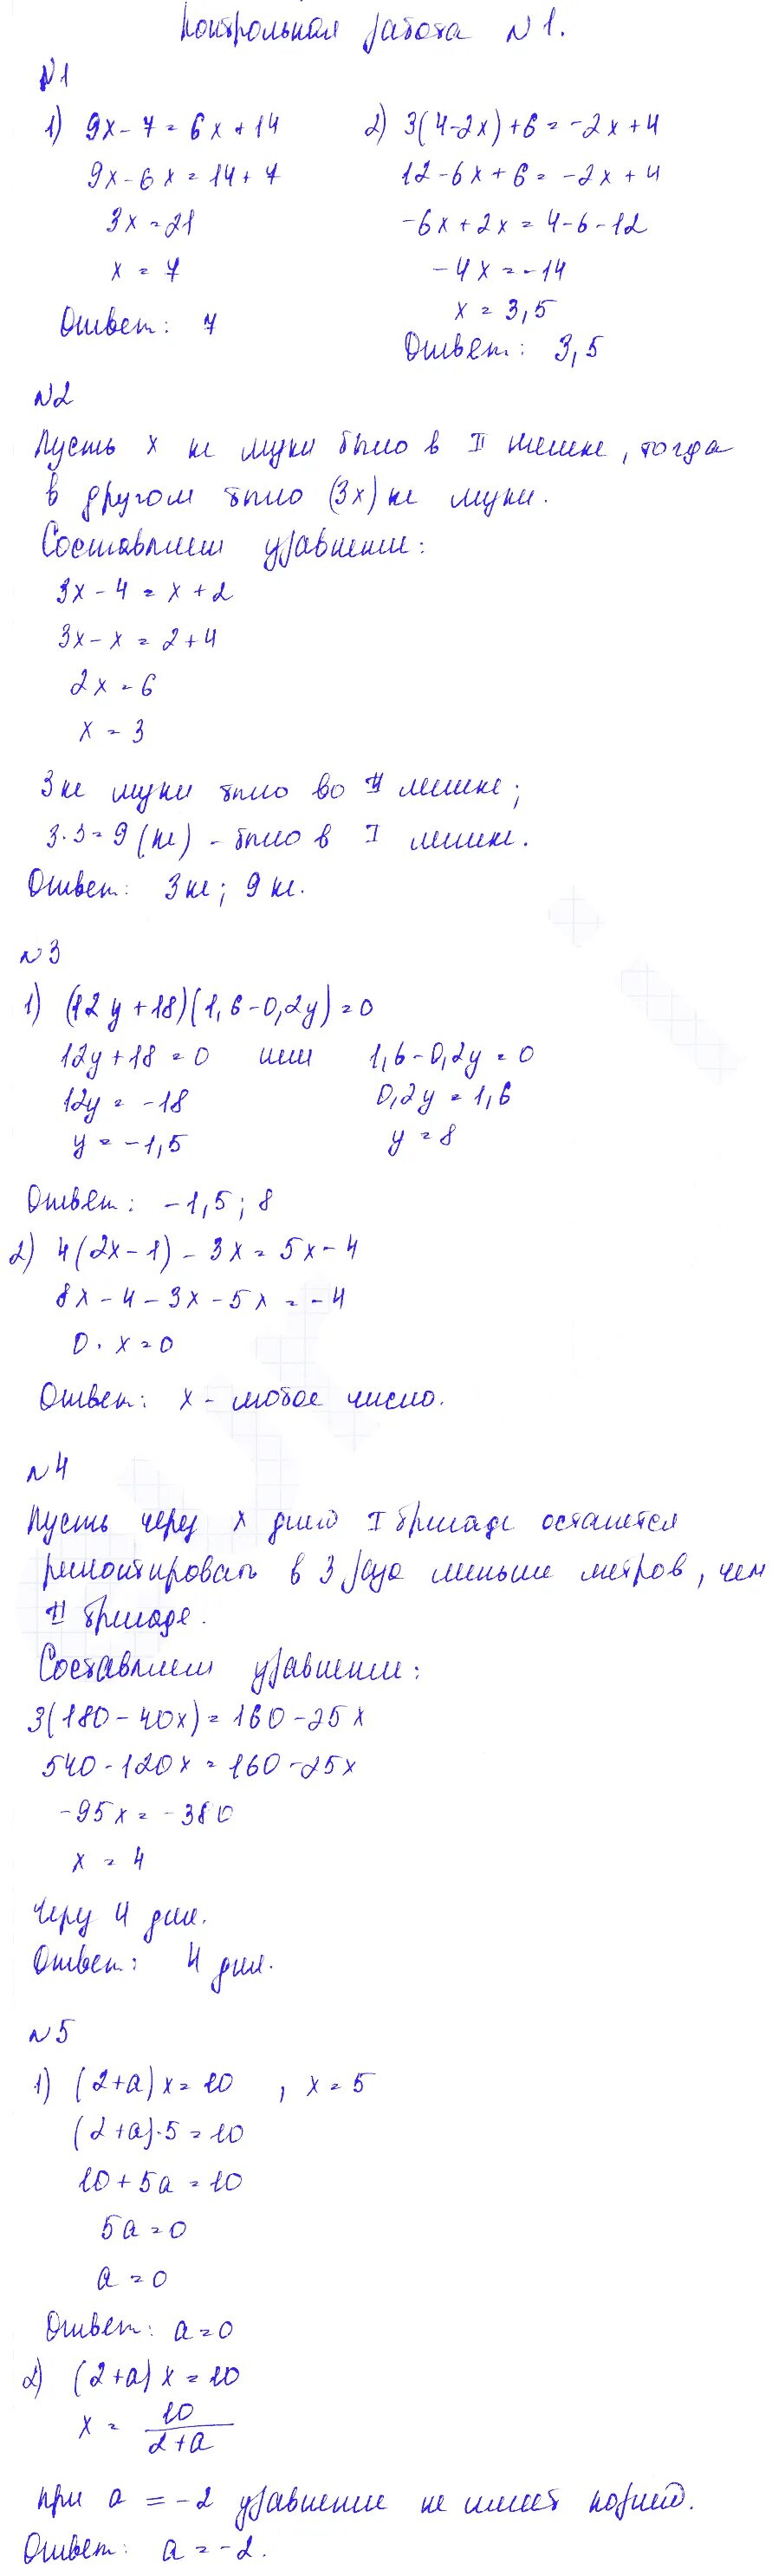 Контрольная работа №1.
№1
1) 9x - 7 = 6x + 14
9x - 6x = 14 + 7
3x = 21
x = 7
Ответ: 7
2) 3(4-2x)+6 = -2x+4
12-6x+6 = -2x+4
-6x+2x = 4-6-12
-4x = -14
x = 3,5
Ответ: 3,5
№2
Пусть x кг муки было в II мешке, тогда
в другом было (3x) кг муки.
Составляем уравнение:
3x - 4 = x + 2
3x - x = 2 + 4
2x = 6
x = 3
3 кг муки было во II мешке;
3·3=9 (кг) - было в I мешке.
Ответ: 3 кг; 9 кг.
№3
1) (12y+18)(1,6-0,2y)=0
12y+18=0 или 1,6-0,2y=0
12y = -18 0,2y = 1,6
y = -1,5 y = 8
Ответ: -1,5; 8
2) 4(2x-1) - 3x = 5x - 4
8x - 4 - 3x - 5x = -4
0·x=0
Ответ: x - любое число.
№4
Пусть через x дней I бригаде останется
ремонтировать в 3 раза меньше метров, чем
II бригаде.
Составляем уравнение:
3(180-40x) = 160-25x
540-120x = 160-25x
-95x = -380
x = 4
Через 4 дня.
Ответ: 4 дня.
№5
1) (2+a)x=10, x=5
(2+a)·5=10
10+5a=10
5a=0
a=0
Ответ: a=0
2) (2+a)x=10
x = 10/(2+a)
при a = -2 уравнение не имеет корней.
Ответ: a = -2.